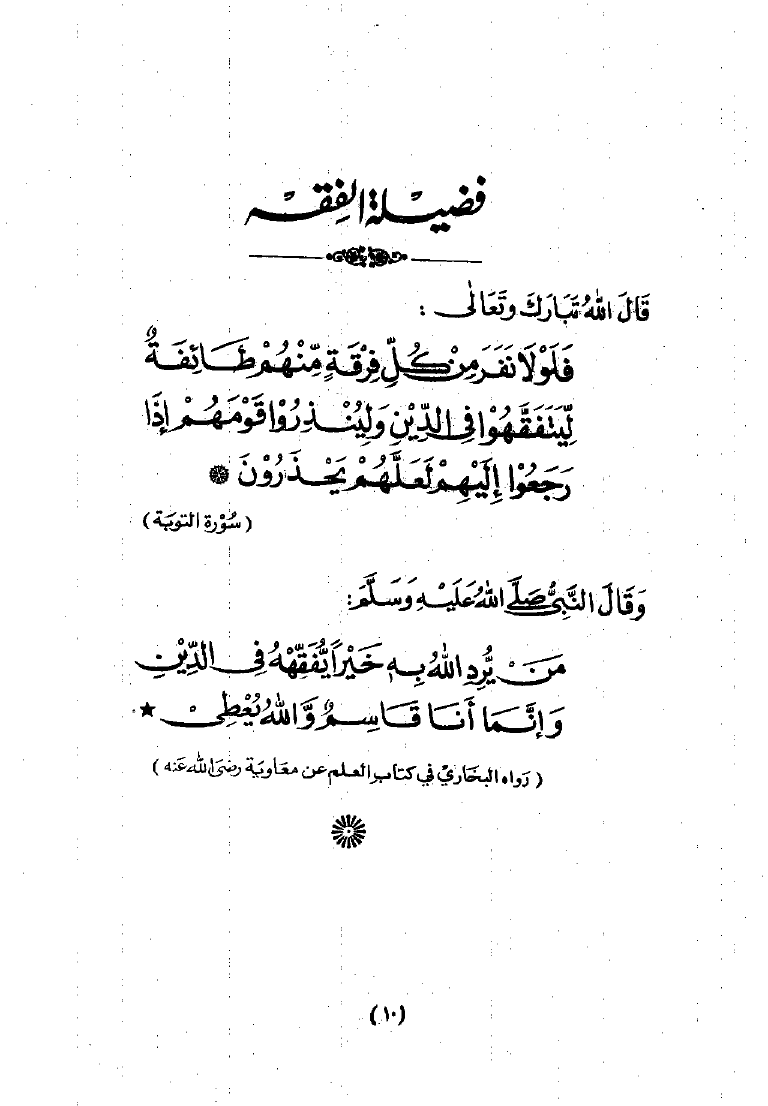 فضيلة الفِقه
قَالَ اللهُ تَبَارَكَ وتَعَالٰى :
فَلَوْلَا نَفَرَ مِنْ كُلِّ فِرْقَةٍ مِّنْهُمْ طَائِفَةٌ
لِّيَتَفَقَّهُوْا فِى الدِّيْنِ وَلِيُنْذِرُوْا قَوْمَهُمْ إِذَا
رَجَعُوْا إِلَيْهِمْ لَعَلَّهُمْ يَحْذَرُوْنَ
( سُوْرة التوبَة )
وَقَالَ النَّبِىُّ صَلَّى اللهُ عَلَيْهِ وَسَلَّمَ:
مَنْ يُّرِدِ اللهُ بِهٖ خَيْرًا يُّفَقِّهْهُ فِى الدِّيْنِ
وَإِنَّمَا أَنَا قَاسِمٌ وَّاللهُ يُعْطِىْ ★
( رَواه البخَاريْ في كتاب العلم عن معَاوية رضىَ الله عَنه )
(١٠)